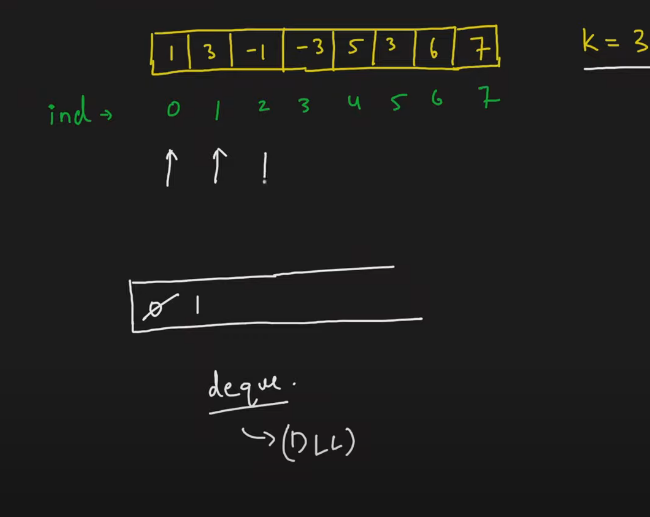 1 3 -1 -3 5 3 6 7 k = 3
ind → 0 1 2 3 4 5 6 7
0 1
deque.
↳ (DLL)